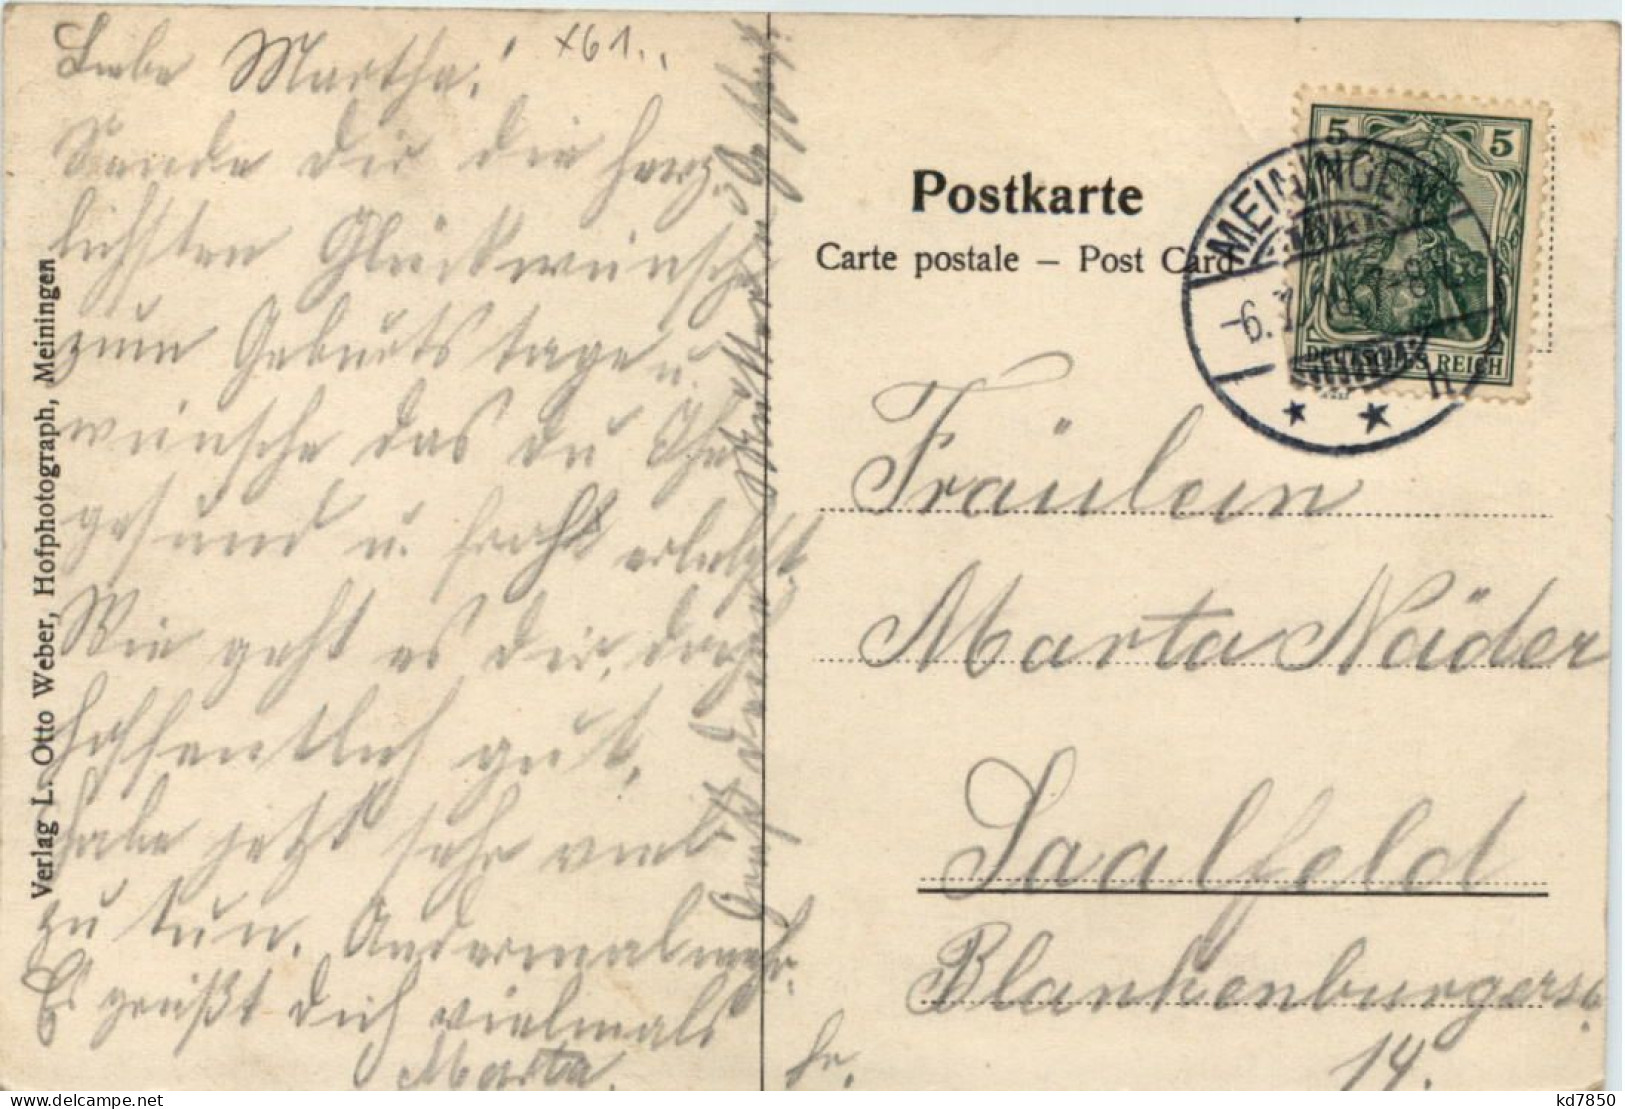 Liebe Martha!
x61..
Sende dir die herz-
lichsten Glückwünsche
zum Geburtstage u.
wünsche das du Ihn
gesund u. froh erlebst.
Wie geht es dir, doch
hoffentlich gut,
habe jetzt sehr viel
zu tun. Andermal mehr.
Es grüßt dich vielmals
Marta.
Gruß an
Verlag L. Otto Weber, Hofphotograph, Meiningen
Postkarte
Carte postale – Post Card
MEININGEN
-6. 1. 10. 7-8 V.
5 5
DEUTSCHES REICH
Fräulein
Marta Näder
Saalfeld
Blankenburgerst.
14.